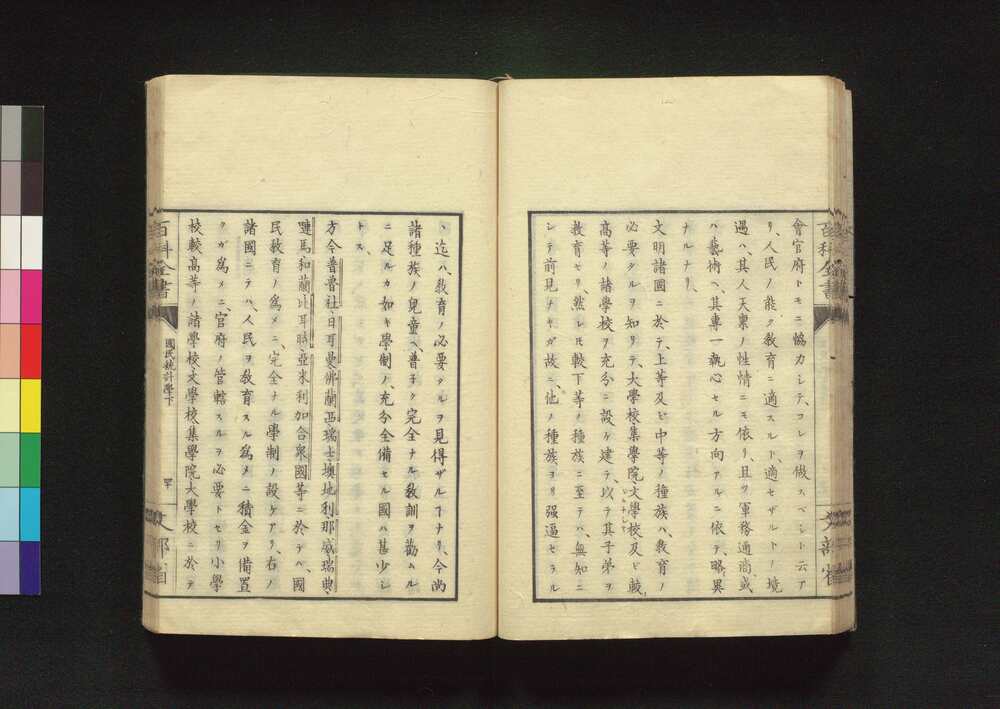 會官府トモニ協力シテ、コレヲ做スベシト云ア
リ、人民ノ能ク敎育ニ適スルト、適セザルトノ境
遇ハ、其人天禀ノ性情ニモ依リ、且ツ軍務通商或
ハ藝術ヘ、其專一執心セル方向アルニ依テ、略異
ナルナリ、
文明諸國ニ於テ、上等及ビ中等ノ種族ハ、敎育ノ
必要タルヲ知リテ、大學校、集學院、文學校及ビ較
高等ノ諸學校ヲ充分ニ設ケ建テ、以テ其子弟ヲ
敎育セリ、然レ𪜈較下等ノ種族ニ至テハ、無知ニ
シテ前見ナキガ故ニ、他ノ種族ヨリ强逼セラル
百科全書
文部省
ヽ迄ハ、敎育ノ必要タルヲ見得ザルヿナリ、今尚
諸種族ノ兒童ヘ、普子ク完全ナル敎訓ヲ勸ムル
ニ足ルカ如キ學制ノ、充分全備セル國ハ甚少シ
トス、
方今普魯社、日耳曼、佛蘭西、瑞士、墺地利、那威、瑞典、
璉馬、和蘭、比耳時、亞米利加合衆國等ニ於テハ、國
民敎育ノ爲メニ、完全ナル學制ノ設ケアリ、右ノ
諸國ニテハ、人民ヲ敎育スル爲メニ、積金ヲ備置
クガ爲メニ、官府ノ管轄スルヲ必要トセリ、小學
校、較高等ノ諸學校、文學校、集學院、大學校ニ於テ
百科全書
國民統計學下
文部省